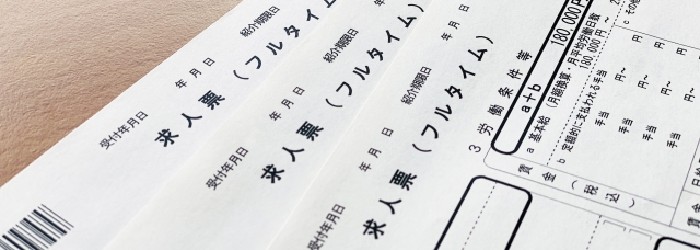 受付年月日
年 月 日
紹介期限日
求人票（フルタイム
受付年月日
年 月 日
紹介期限日
求人票（フルタイム
受付年月日
年 月 日
紹介期限日
年 月 日
求人票（フルタイム）
3 労働条件等
a+b
180,000円
a 基本給 （月額換算・月平均労働日数
180,000円 ～
b 定額的に支払われる手当
手当 円～
手当 円～
手当 円～
手当 円～
賃金（税込）